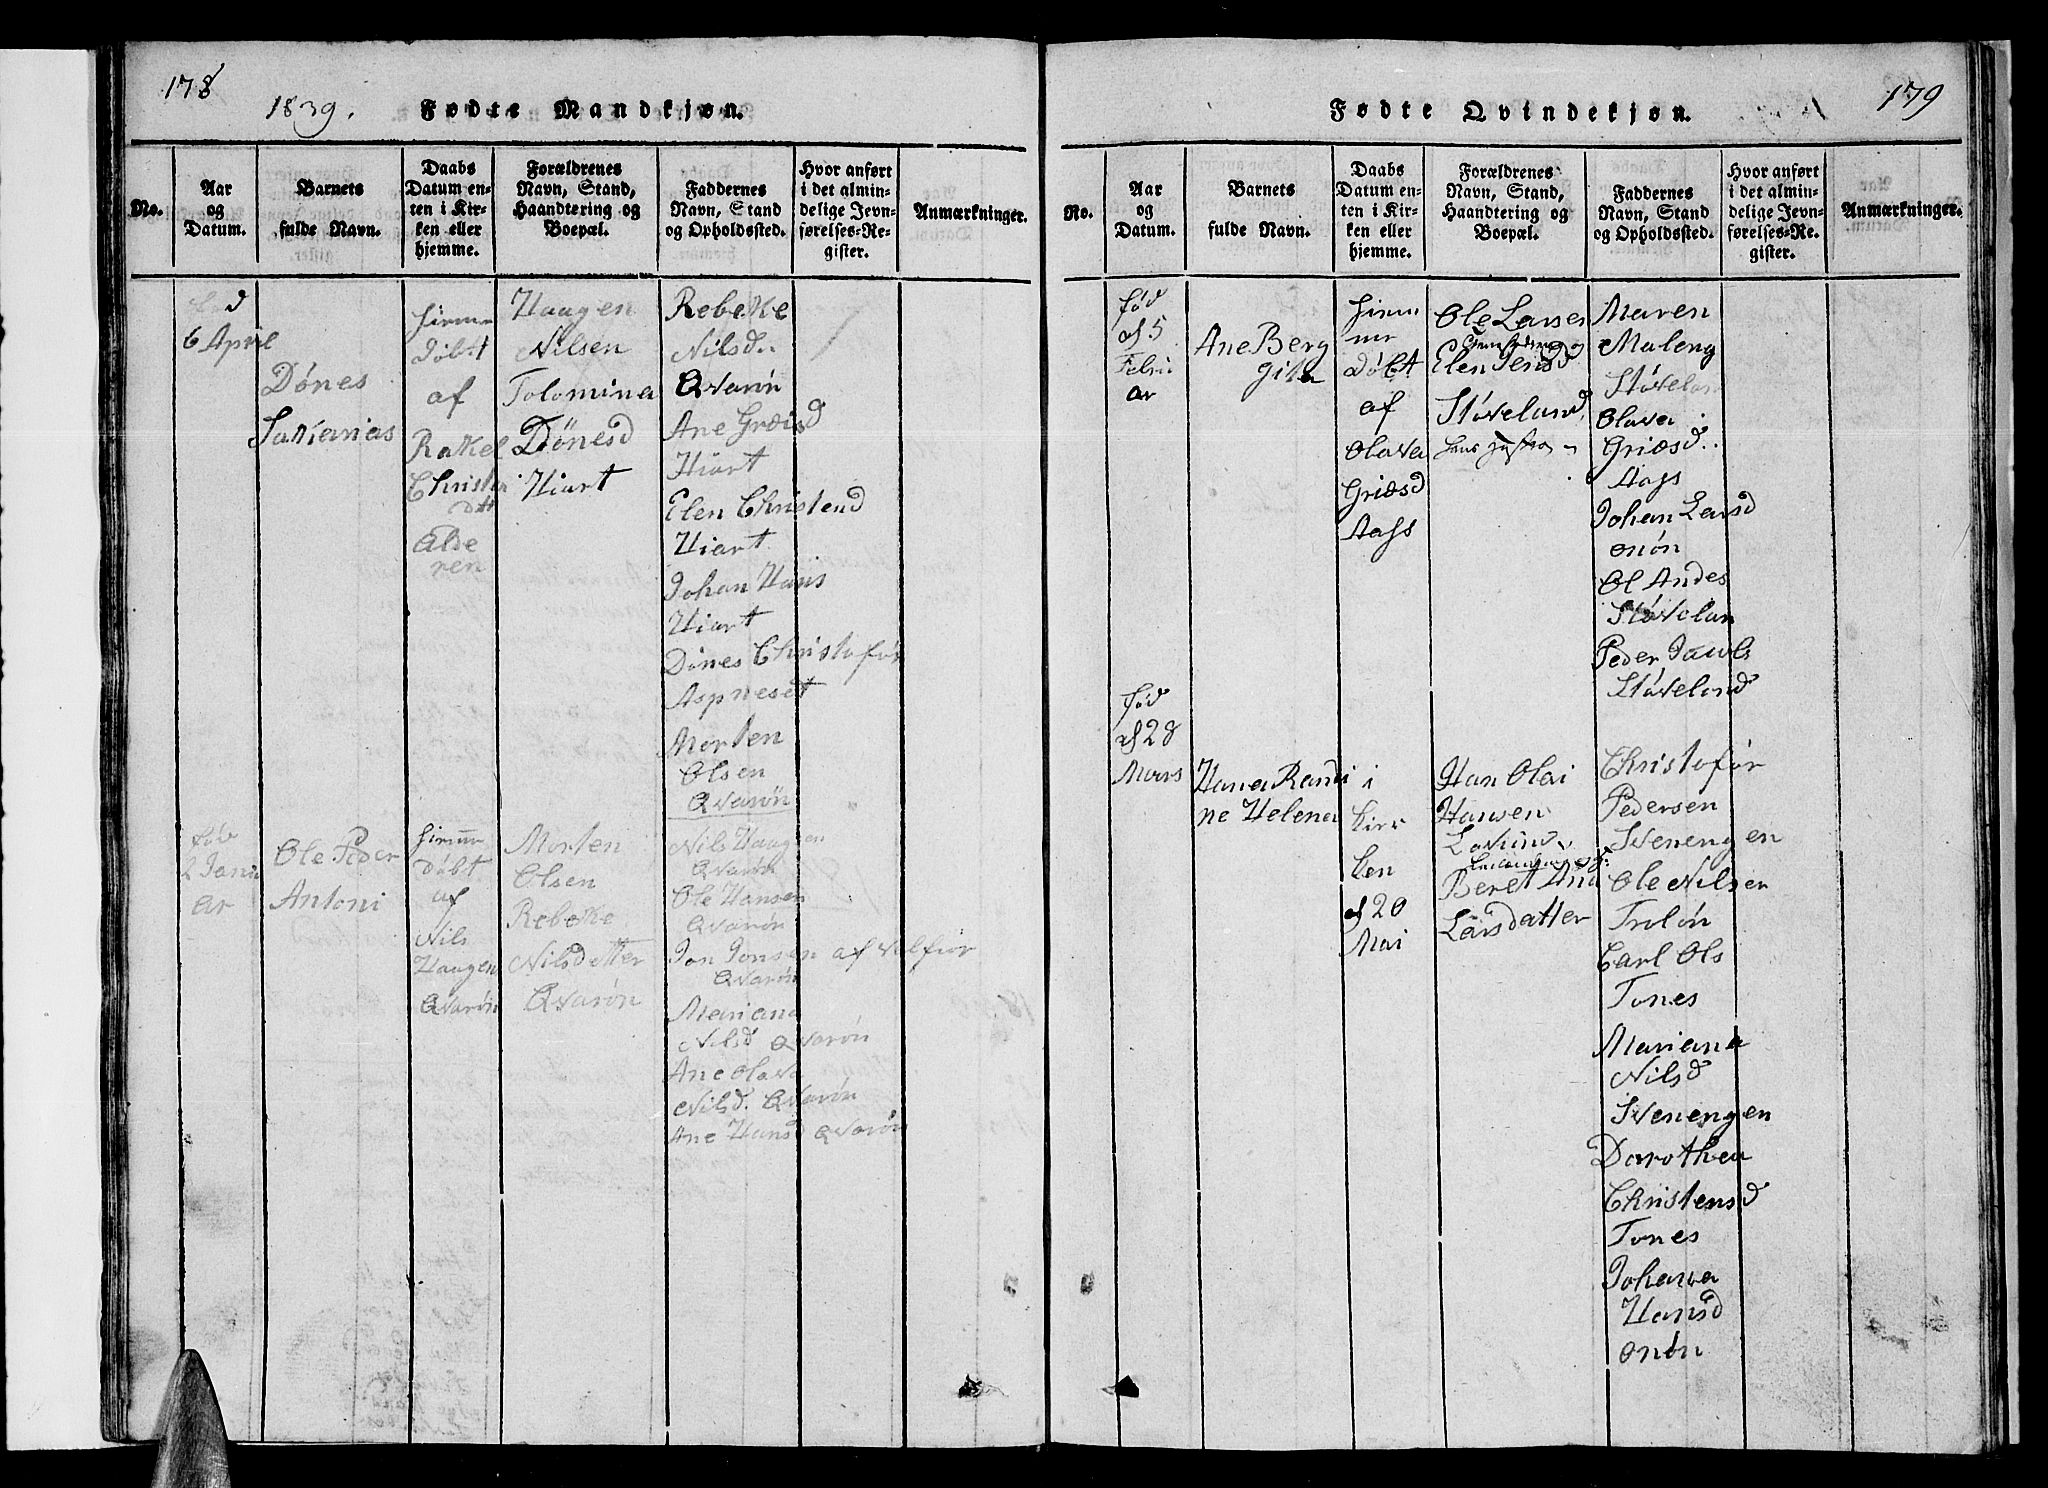 178
1839.
Fødte Mandkjøn.
No.
Aar
og
Datum.
Barnets
fulde Navn.
Daabs
Datum en-
ten i Kir-
ken eller
hjemme.
Forældrenes
Navn, Stand,
Haandtering og
Boepæl.
Faddernes
Navn, Stand
og Opholdssted.
Hvor anført
i det almin-
delige Jevn-
førelses-Re-
gister.
Anmærkninger.
6 April
Dönes
Sakarias
hiemme
döbt
af
Rakel
Christen
Datt
Alde
ren
Haagen
Nilsen
Tolomina
Dönesd
Hiart
Rebeke
Nilsd.
Qvarön
Ane Græisd
Hiart
Elen Christend
Hiart
Johan Hans
Hiart
Dönes Christoför
Aspneset
Morten
Olsen
Qvarön
föd
2 Janu
ar
Ole Peder
Antoni
hiemme
döbt
af
Nils
Haagen
Qvarön
Morten
Olsen
Rebeke
Nilsdatter
Qvarön
Nils Haagen
Qvarön
Ole Hansen
Qvarön
Jon Jonsen af Velfior
Qvarön
Mariana
Nilsd Qvarön
Ane Olava
Nilsd. Qvarön
Ane Hansd Qvarön
179
Fødte Qvindekjøn.
No.
Aar
og
Datum.
Barnets
fulde Navn.
Daabs
Datum en-
ten i Kir-
ken eller
hjemme.
Forældrenes
Navn, Stand,
Haandtering og
Boepæl.
Faddernes
Navn, Stand
og Opholdssted.
Hvor anført
i det almin-
delige Jevn-
førelses-Re-
gister.
Anmærkninger.
föd
d 5
Febru
ar
Ane Berg
gita
hiem
me
döbt
af
Olava
Griæsd
Aags
Ole Larsen
Elen Jensd
Stöveland
Maren
Maleng
Stövelan
Olava
Griæsd.
Aags
Johan Larsd
onön
Ol Andes
Stövelan
Peder Jacobs
Stövelond
föd
d 28
Mars
Hana Randi
ne Helena
i
kirr
ken
d 20
Mai
Han Olai
Hansen
Lovund
Beret Ana
Larsdatter
Christoför
Pedersen
Svenengen
Ole Nilsen
Trolön
Carl Ols
Tones
Mariana
Nilsd
Svenengen
Dorothea
Christensd
Tones
Johana
Hansd
onön